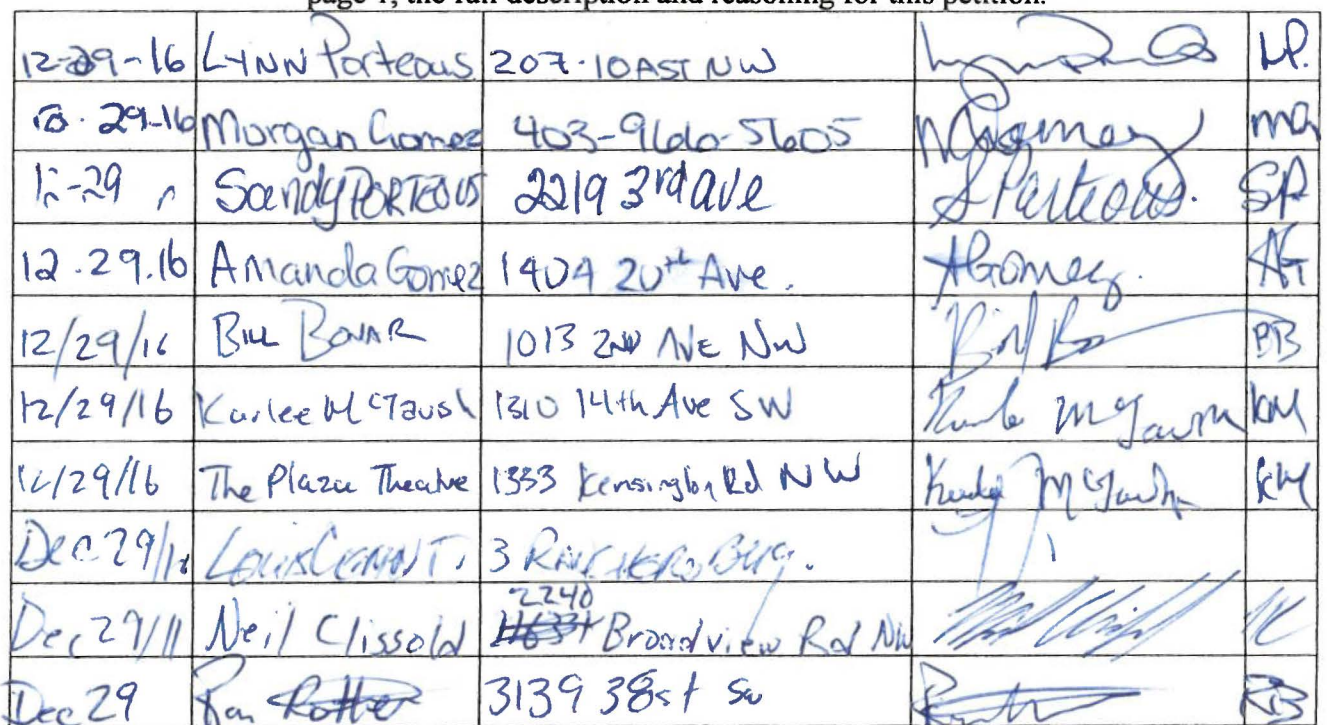 page 1, the full description and reasoning for this petition.
12-29-16 LYNN Porteous 207-10A ST NW L.P.
29-16 Morgan Gomez 403-966-5605 MGomez mg
12-29 Sandy PORTEOUS 2219 3rd ave S Porteous. SP
12.29.16 Amanda Gomez 1404 20th Ave. AGomez. AG
12/29/16 BILL BONAR 1013 2ND AVE NW BB
12/29/16 Karlee 1310 14th Ave SW KM
12/29/16 The Plaza Theatre 1333 Kensington Rd NW KM
Dec 29/16 LOUIS 3
2240
Dec 29/11 Neil Clissold Broadview Rd NW NC
Dec 29 3139 38st SW RB